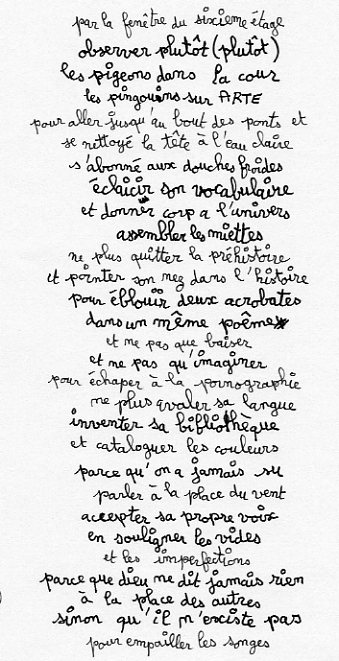 par la fenêtre du sixieme étage
observer plutôt (plutôt)
les pigeons dans la cour
les pingouins sur ARTE
pour aller jusqu'au bout des ponts et
se nettoyé la tête à l'eau claire
s'abonné aux douches froides
éclaicir son vocabulaire
et donner corp a l'univers
assembler les miettes
ne plus quitter la préhistoire
et pointer son nez dans l'histoire
pour éblouir deux acrobates
dans un même poême
et ne pas que baiser
et ne pas qu'imaginer
pour échaper à la pornographie
ne plus avaler sa langue
inventer sa bibliothèque
et cataloguer les couleurs
parce qu'on a jamais su
parler à la place du vent
accepter sa propre voix
en souligner les vides
et les imperfections
parce que dieu ne dit jamais rien
à la place des autres
sinon qu'il n'existe pas
pour empailler les songes